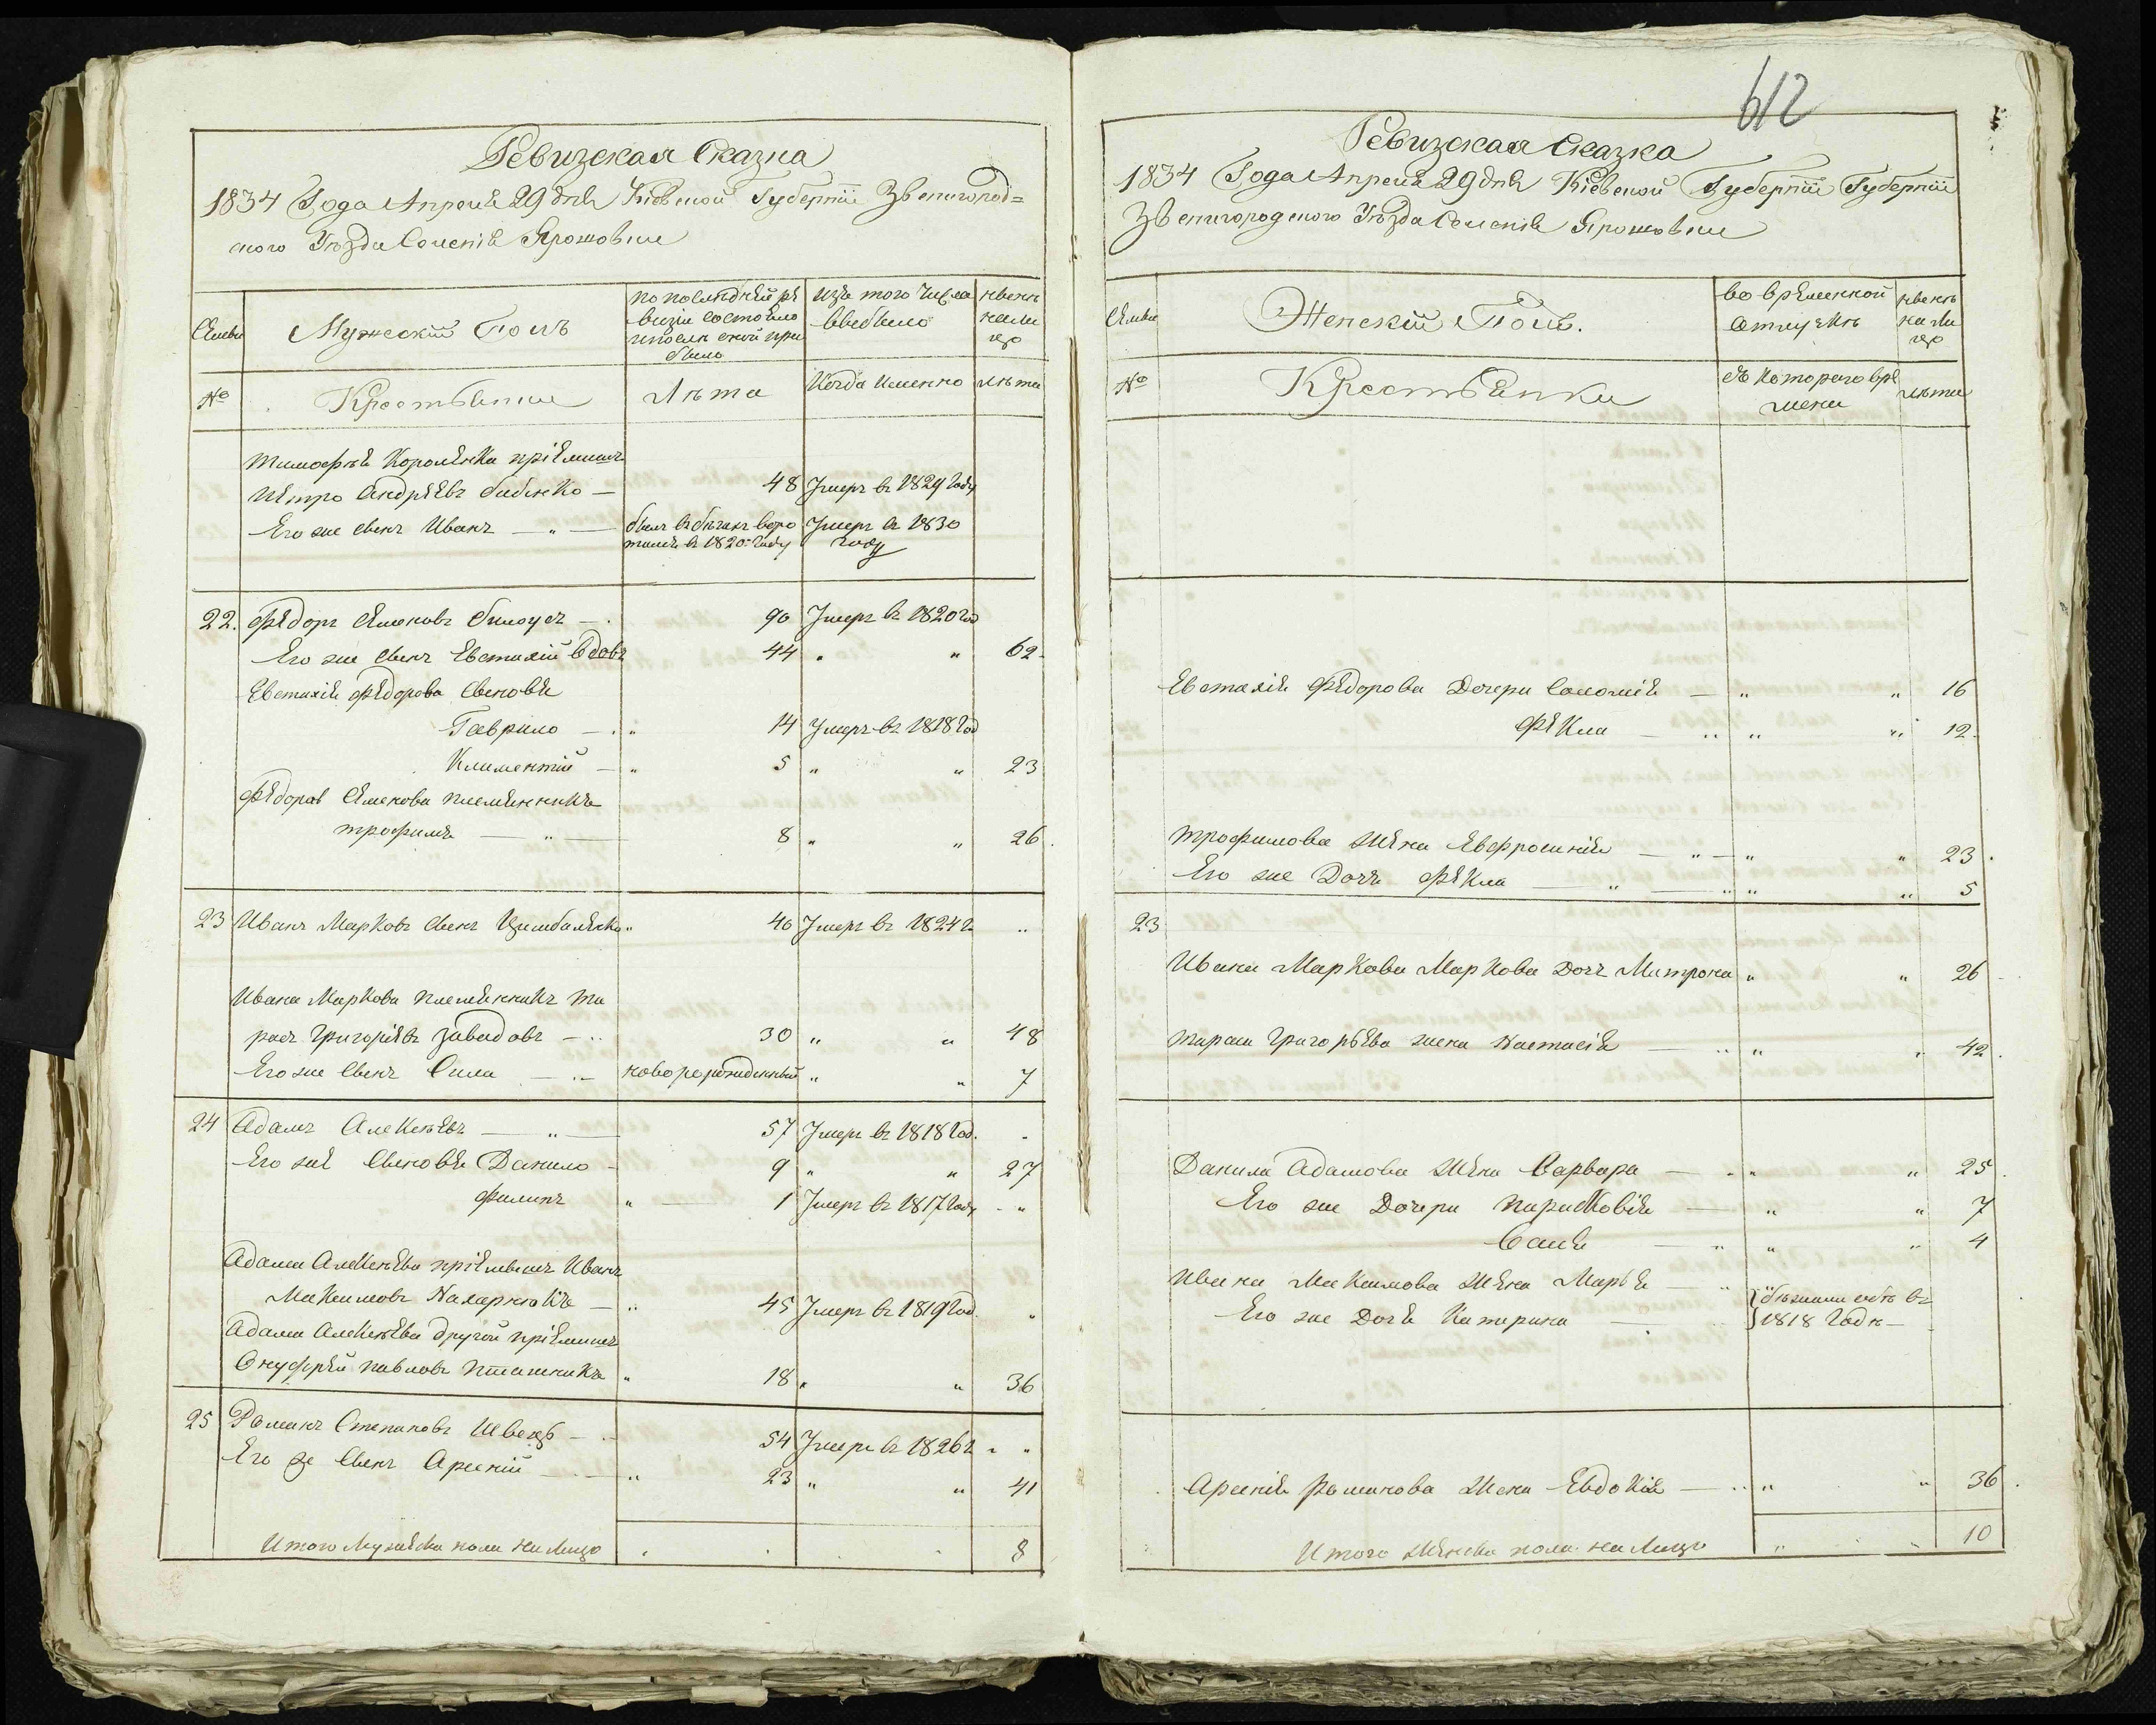 Ревизская Сказка
1834 Года Апреля 29 дня Кіевской Губерніи Звенигород=
ского Уезда Селенія Ярошовки
Семьи
Мужеский Полъ
по последней ре
визіи состояло
и после оной при
было
Изъ того числа
выбыло
ныне
на ли
цо
№
Крестьяне
Лѣта
Когда именно
лѣта
Тимофея Короленка пріемышъ
Петро Андреевъ Бабенко — 48 Умеръ въ 1829 году
Его же сынъ Иванъ — „ — былъ въ бегахъ воро Умеръ въ 1830
тился въ 1820 году году
22. Федоръ Семеновъ Билоусъ — 90 Умеръ въ 1820 го
Его же сынъ Евстахій вдовъ 44 „ „ 62
Евстахія Федорова сыновья
Гаврило — „ 14 Умеръ въ 1818 год
Климентій — „ 5 „ „ 23
Федора Семенова племенникъ
Трофимъ — „ — 8 „ „ 26
23 Иванъ Марковъ сынъ Цимбаленко „ 40 Умеръ въ 1824 г. „
Ивана Маркова племенникъ Та
расъ Григорьевъ Завадовъ — „ 30 „ „ 48
Его же сынъ Сила — „ — новорожденный „ „ 7
24 Адамъ Алексеевъ — „ — 57 Умеръ въ 1818 год.
Его же сыновья Данило — 9 „ „ 27
Филипъ „ — 1 Умеръ въ 1817 году „
Адама Алексеева пріемышъ Иванъ
Максимовъ Назарнюкъ — „ 45 Умеръ въ 1819 год.
Адама Алексеева другой пріемышъ
Онуфрей Павловъ Пташникъ „ 18 „ „ 36
25 Романъ Степановъ Швецъ — 54 Умеръ въ 1826 г „
Его же сынъ Арсеній — „ 23 „ „ 41
Итого Мужеска пола на лицо 8
612
Ревизская Сказка
1834 Года Апреля 29 дня Кіевской Губерніи Губерніи
Звенигородского Уезда Селенія Ярошовки
Семьи
Женскій Полъ.
во временной
отлучкѣ
ныне
на ли
цо
№
Крестьянки
съ которого вре
мени
лѣта
Евстахія Федорова Дочери Соломія — „ „ 16
Фекла — „ „ „ 12
Трофимова жена Евфросинія — „ — „ „ 23
Его же Дочь Фекла — „ — „ „ „ 5
23
Ивана Маркова Маркова Дочь Матрона „ „ 26
Тараса Григорьева жена Настасія — „ „ 42
Данила Адамова жена Варвара — „ „ 25
Его же Дочери Парасковія — „ „ 7
— „ „ „ 4
Ивана Максимова жена Марья —
Его же Дочь Катерина —
бежали обѣ въ
1818 годѣ —
Арсенія Романова жена Евдокія — „ „ „ 36
Итого женска пола на Лицо „ „ 10